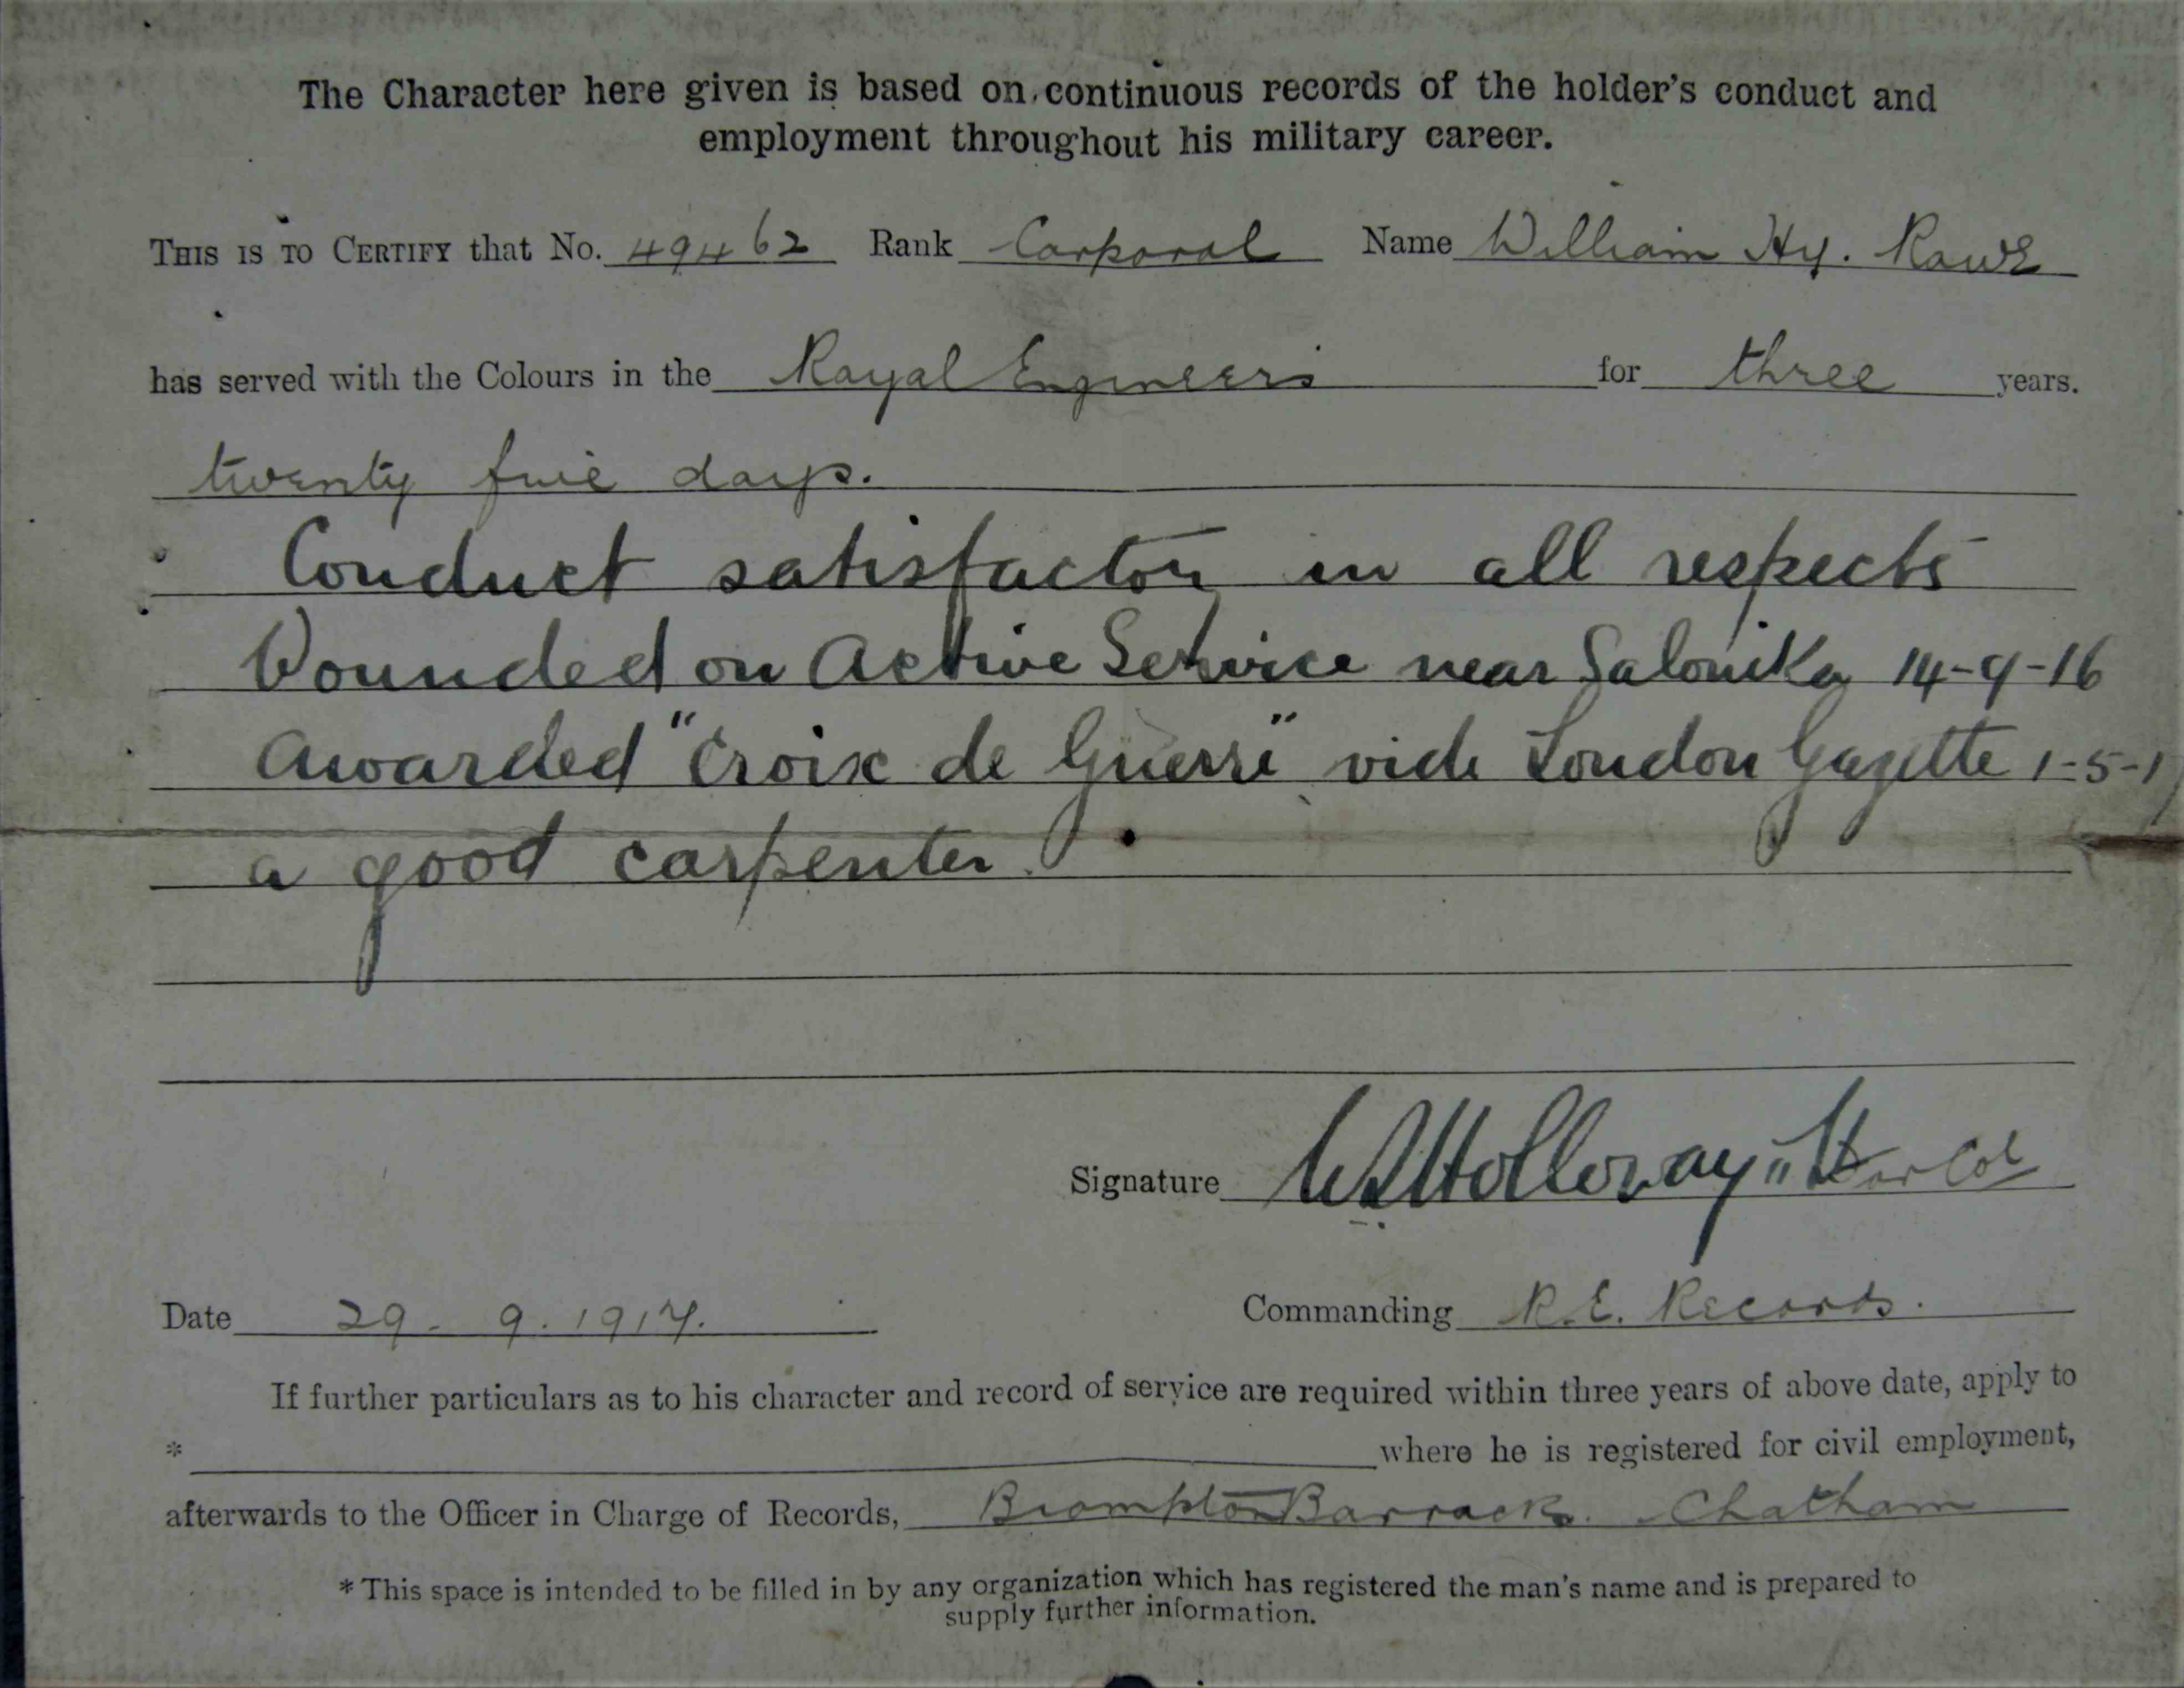 The Character here given is based on continuous records of the holder's conduct and
employment throughout his military career.
THIS IS TO CERTIFY that No. 49462 Rank Corporal Name William Hy. Rowe
has served with the Colours in the Royal Engineers for three years.
twenty five days.
Conduct satisfactory in all respects
Wounded on Active Service near Salonika 14-9-16
Awarded "Croix de Guerre" vide London Gazette 1-5-17
a good carpenter
Signature Holloway
Date 29. 9. 1917. Commanding R.E. Records.
If further particulars as to his character and record of service are required within three years of above date, apply to
* where he is registered for civil employment,
afterwards to the Officer in Charge of Records, Brompton Barracks. Chatham
* This space is intended to be filled in by any organization which has registered the man's name and is prepared to
supply further information.